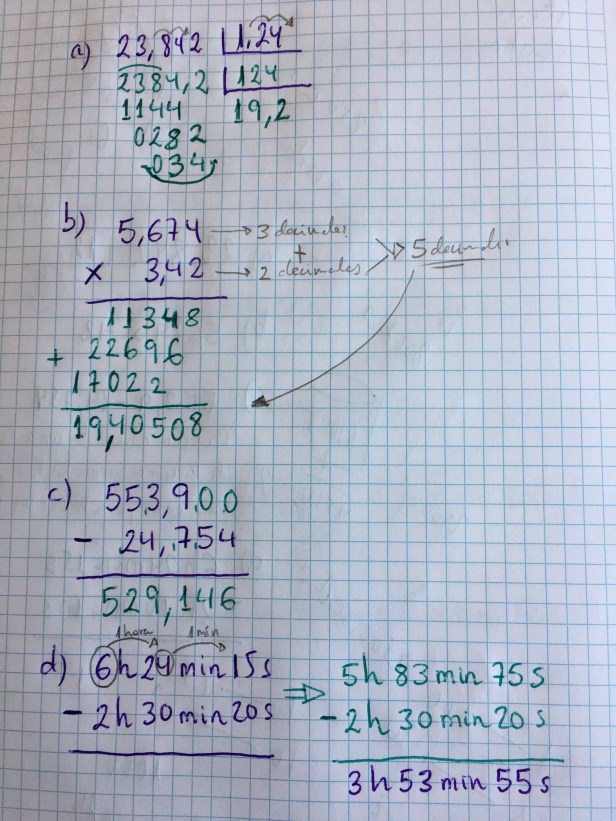 a) 23,842 | 1,24
2384,2 | 124
1144 19,2
0282
034
b) 5,674 → 3 decimales
+
x 3,42 → 2 decimales 5 decimales
11348
+ 22696
17022
19,40508
c) 553,900
- 24,754
529,146
1 hora 1 min
d) 6h 24min 15s ⇒ 5h 83min 75s
- 2h 30min 20s - 2h 30min 20s
3h 53min 55s